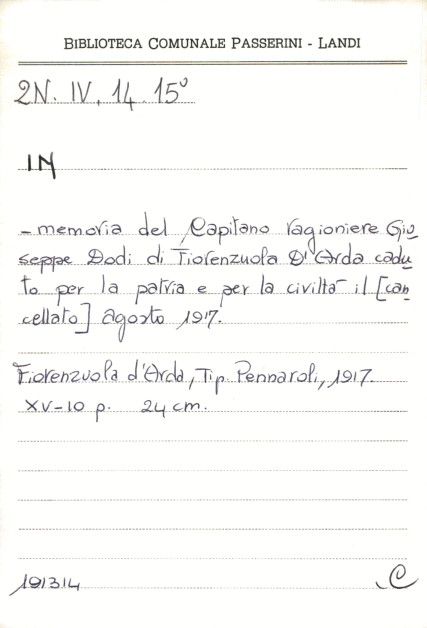 BIBLIOTECA COMUNALE PASSERINI - LANDI
2N. IV. 14. 15°
IN
- memoria del Capitano ragioniere Giu
seppe Dodi di Fiorenzuola D'Arda cadu
to per la patria e per la civiltà il [can
cellato] agosto 1917.
Fiorenzuola d'Arda, Tip. Pennaroli, 1917.
XV-10 p. 24 cm.
191314 C